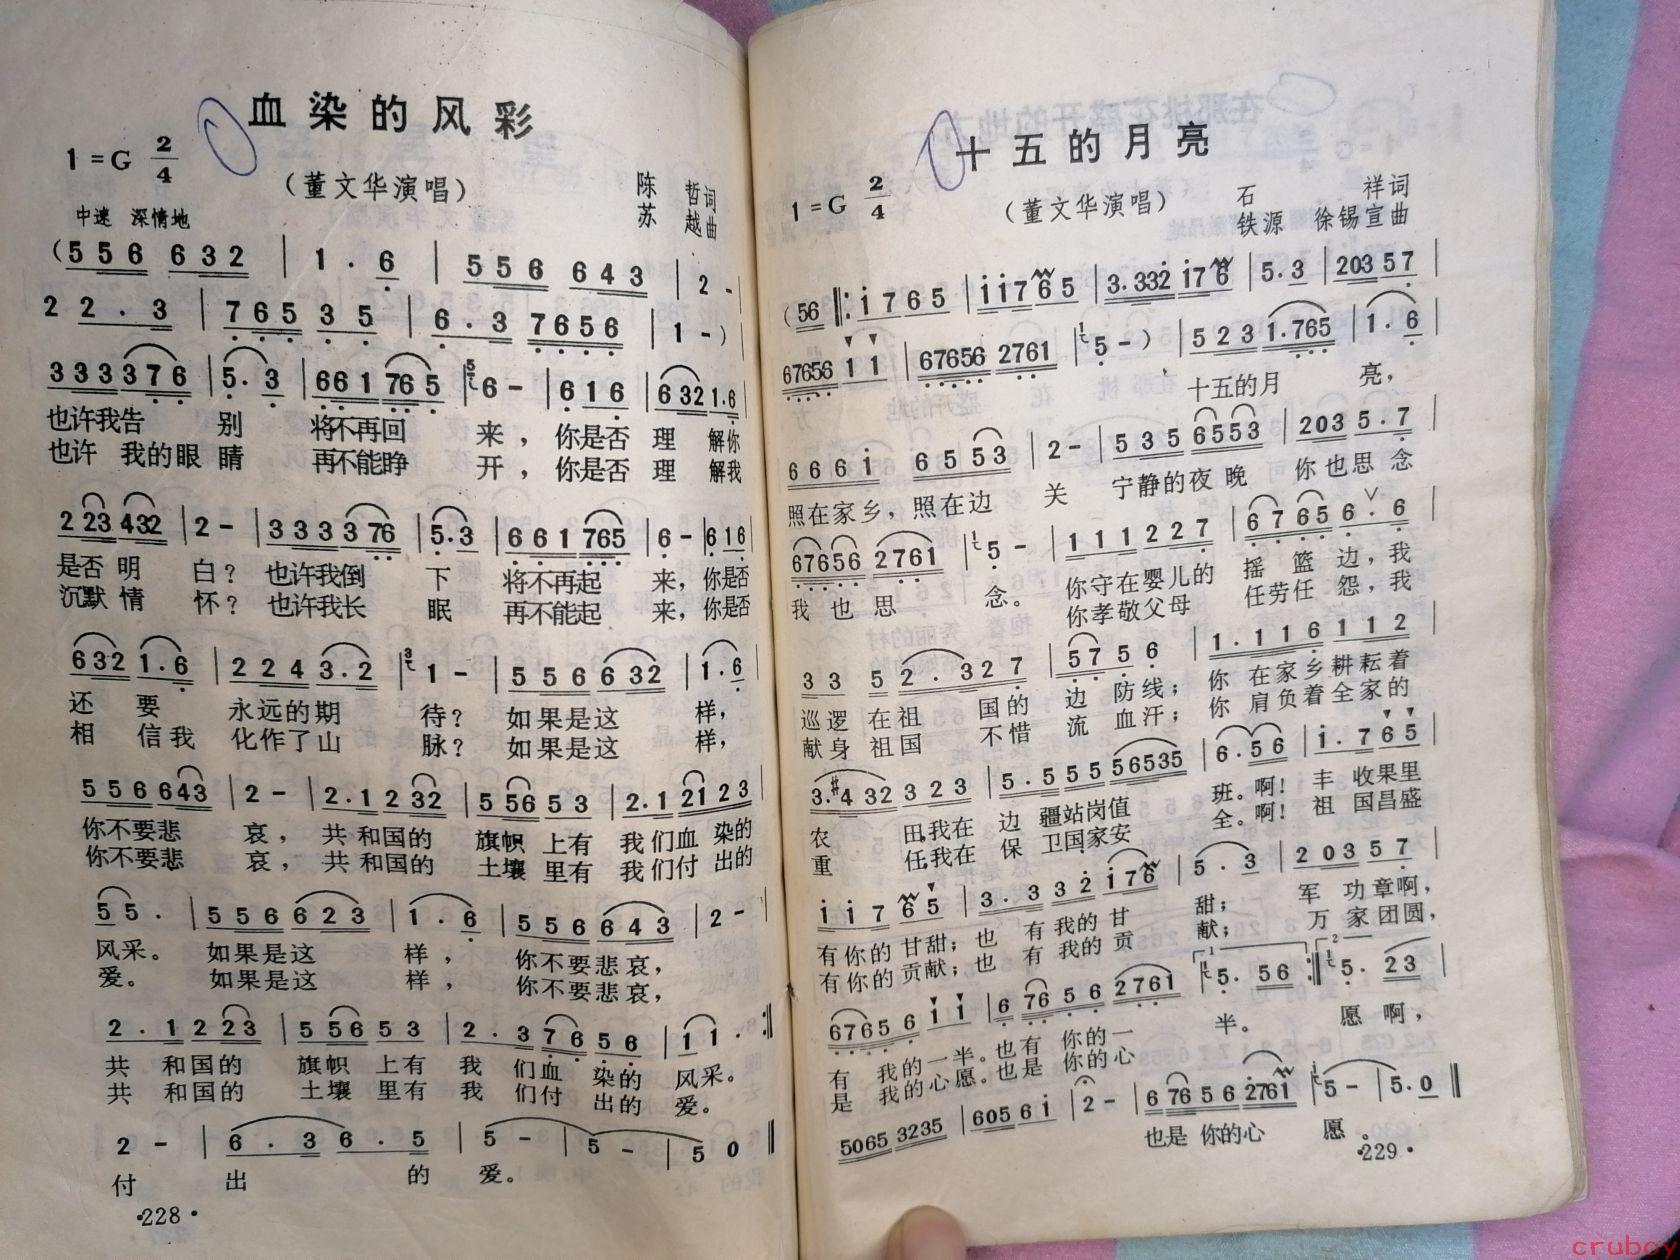 血染的风彩
1=G 2/4
(董文华演唱)
陈 哲词
苏 越曲
中速 深情地
(556 632 | 1 . 6 | 556 643 | 2 -
2 2 . 3 | 765 3 5 | 6 . 3 7656 | 1 - )
333376 | 5 . 3 | 661 765 | 6 - | 616 | 6321.6
也许我告 别 将不再回 来，你是否 理 解你
也许 我的眼 睛 再不能睁 开，你是否 理 解我
223 432 | 2 - | 333376 | 5 . 3 | 661765 | 6 - | 616
是否 明 白？也许我倒 下 将不再起 来，你是否
沉默 情 怀？也许我长 眠 再不能起 来，你是否
632 1.6 | 2243.2 | 1 - | 556632 | 1.6
还 要 永远的期 待？如果是这 样，
相 信我 化作了山 脉？如果是这 样，
556643 | 2 - | 2.1232 | 55653 | 2.12123
你不要悲 哀，共和国的 旗帜 上有 我们血 染的
你不要悲 哀，共和国的 土壤 里有 我们付 出的
55. | 556623 | 1.6 | 556643 | 2 -
风采。 如果是这 样， 你不要悲哀，
爱。 如果是这 样， 你不要悲哀，
2 . 1223 | 55653 | 2 . 37656 | 11 .
共 和国的 旗帜 上有 我 们血 染的 风采。
共 和国的 土壤 里有 我 们付 出的 爱。
2 - | 6 . 36 . 5 | 5 - | 5 - | 50
付 出 的 爱。
·228·
十五的月亮
1=G 2/4
(董文华演唱)
石 祥词
铁源 徐锡宣曲
(56 |: 1765 | 117 65 | 3.332 176 | 5.3 | 20357
67656 11 | 67656 2761 | 5 - ) | 523 1.765 | 1.6
十五的月 亮，
6661 6553 | 2 - | 535 6553 | 203 5.7
照在家乡，照在边 关 宁静的夜 晚 你也思 念
67656 2761 | 5 - | 111 227 | 6765 6.6
我 也 思 念。 你守在婴儿的 摇 篮 边，我
你孝敬父母 任劳任 怨，我
33 5 2.327 | 57 56 | 1.116 112
巡逻 在祖 国的 边 防线；你 在家乡耕耘着
献身 祖国 不惜 流 血汗；你 肩负着全家的
3.#432 323 | 5.555 56535 | 6.56 | 1.765
农 田,我在 边 疆站岗值 班。啊！丰 收果里
重 任,我在 保 卫国家安 全。啊！祖 国昌盛
11765 | 3.332 176 | 5.3 | 20357
有你的 甘甜；也 有 我的 甘 甜； 军 功章啊，
有你的 贡献；也 有 我的 贡 献； 万 家团圆，
67656 11 | 67656 2761 | 5. 56 :| 5. 23
有 我的一半。也有 你的一 半。 愿 啊，
是 我的心愿。也是 你的心
5065 3235 | 60561 | 2 - | 67656 2761 | 5 - | 5.0
也是 你的心 愿。
·229·
cruboy